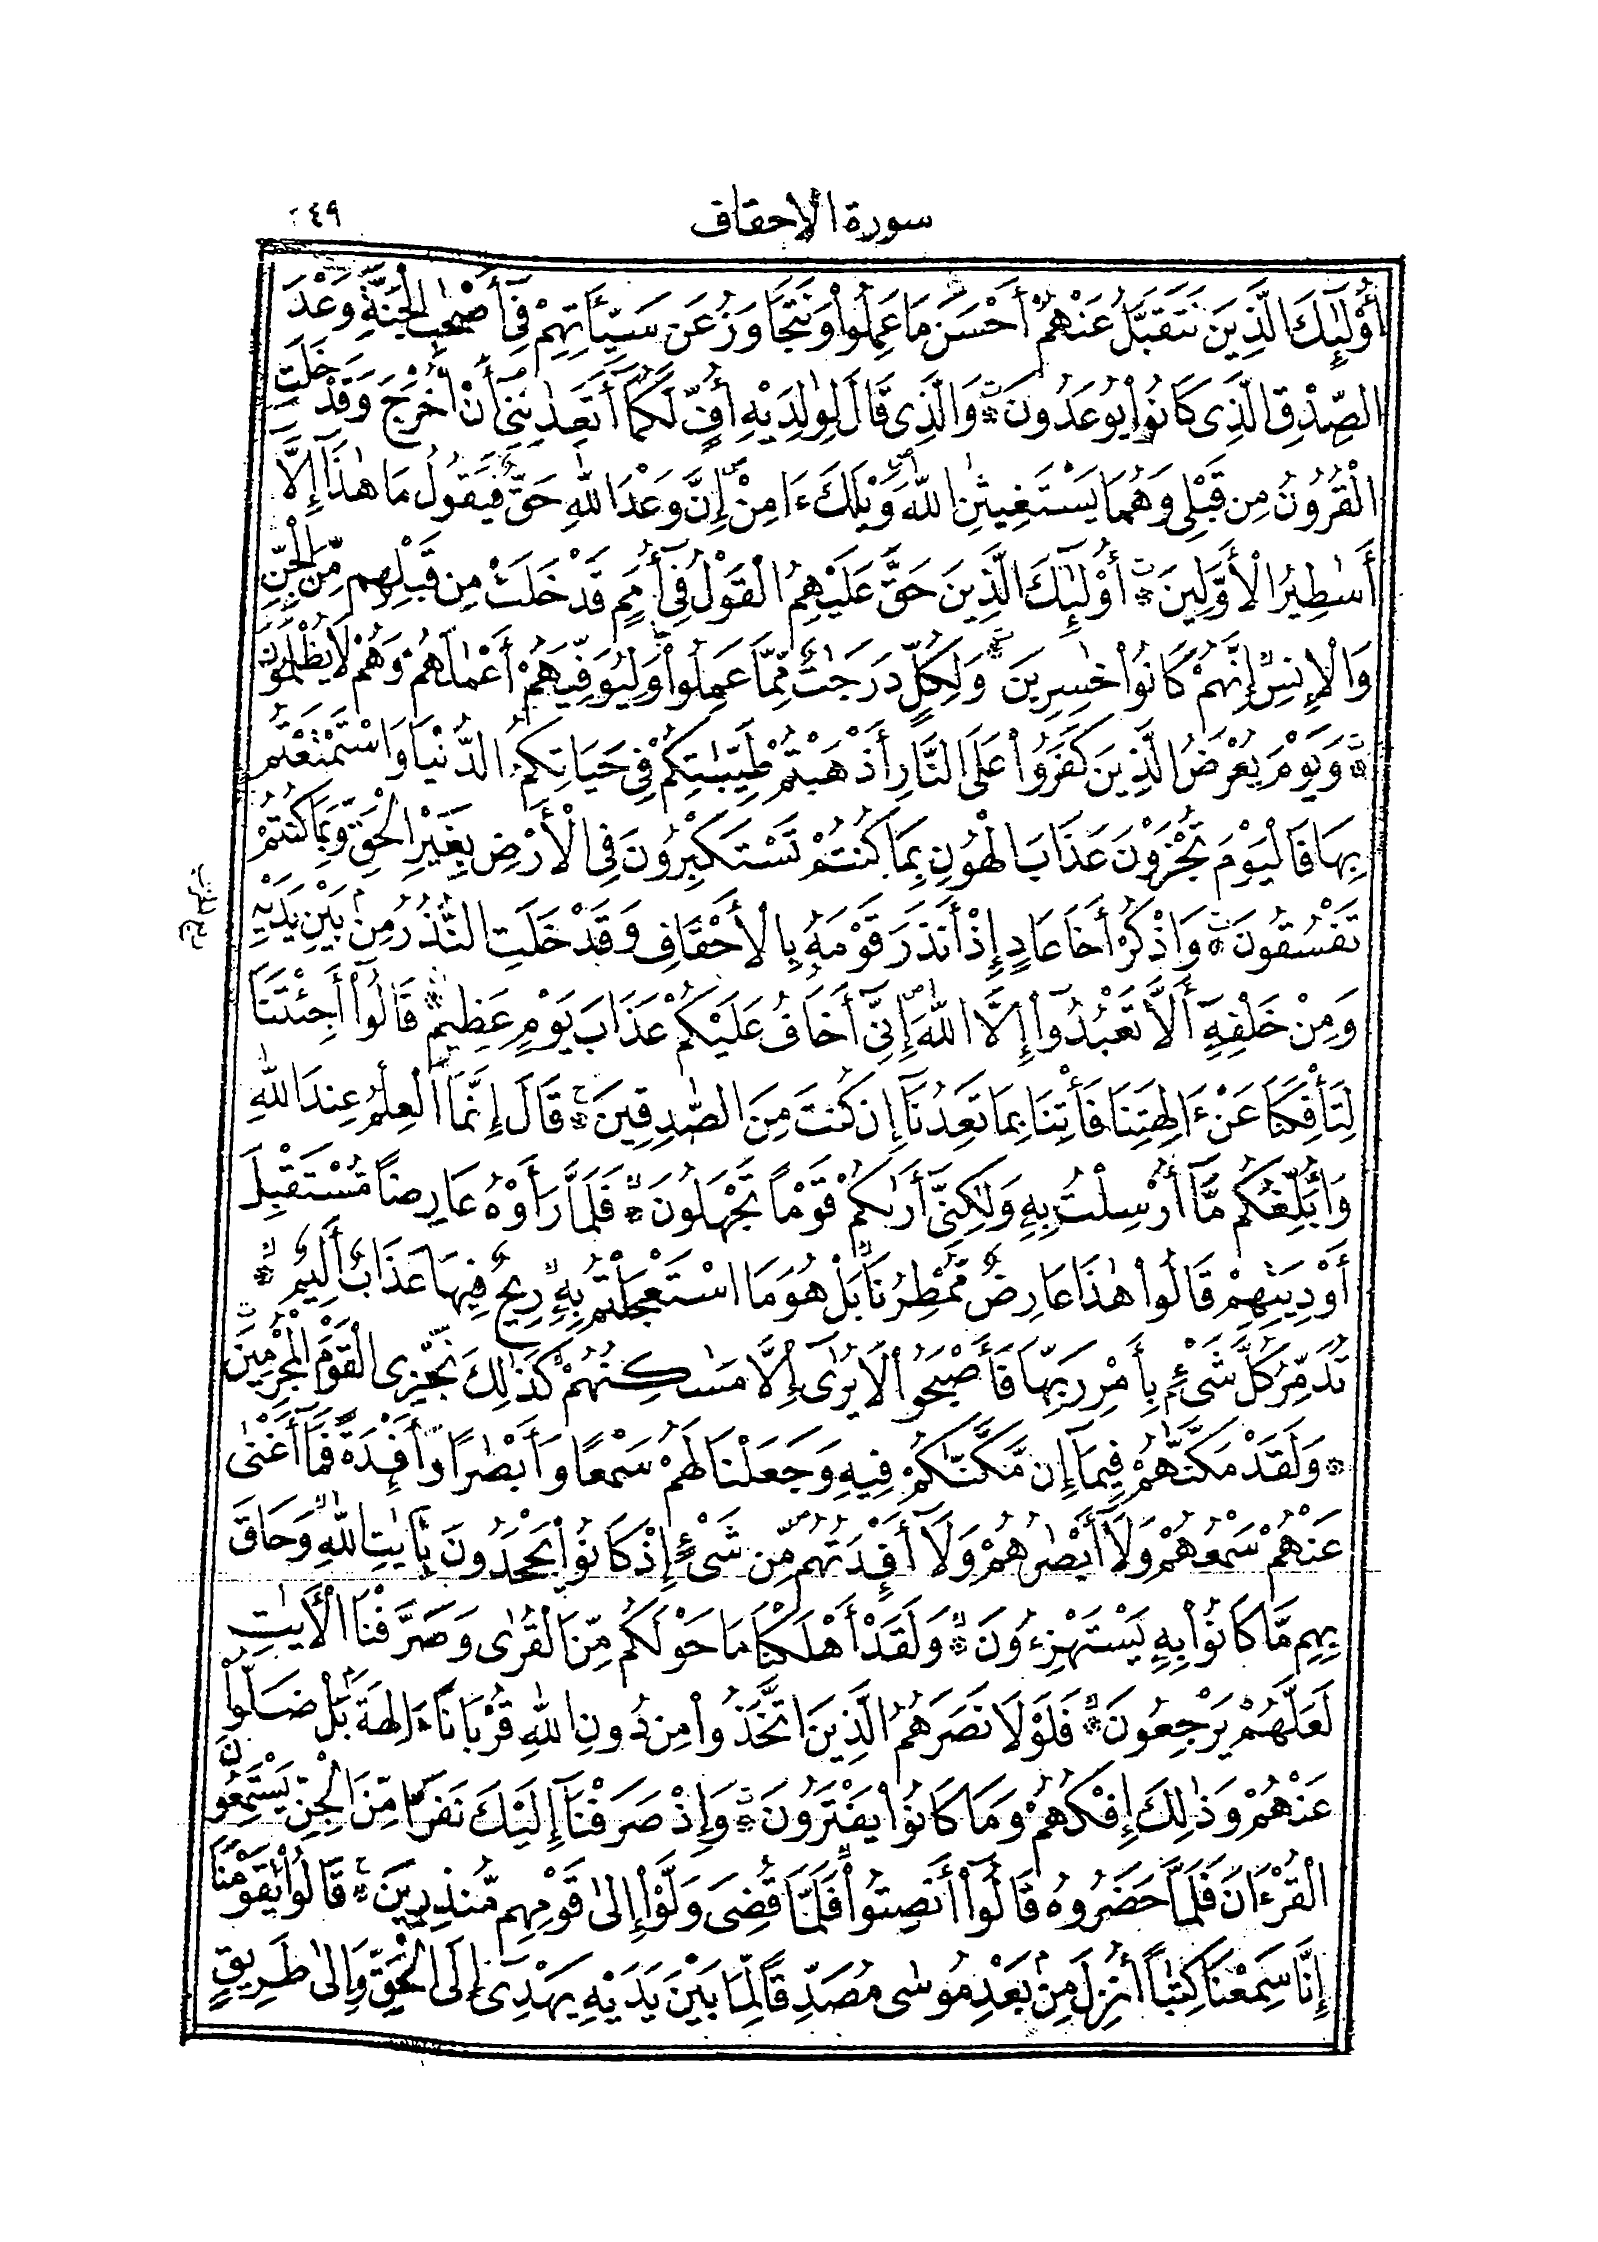 سورة الاحقاف
٤٩
أُوْلَٰٓئِكَ الَّذِينَ نَتَقَبَّلُ عَنْهُمْ أَحْسَنَ مَا عَمِلُواْ وَنَتَجَاوَزُ عَن سَيِّـَٔاتِهِمْ فِىٓ أَصْحَٰبِ الْجَنَّةِ وَعْدَ
الصِّدْقِ الَّذِى كَانُواْ يُوعَدُونَ ۞ وَالَّذِى قَالَ لِوَٰلِدَيْهِ أُفٍّ لَّكُمَآ أَتَعِدَانِنِىٓ أَنْ أُخْرَجَ وَقَدْ خَلَتِ
الْقُرُونُ مِن قَبْلِى وَهُمَا يَسْتَغِيثَٰنِ اللَّهَ وَيْلَكَ ءَامِنْ إِنَّ وَعْدَ اللَّهِ حَقٌّ فَيَقُولُ مَا هَٰذَآ إِلَّآ
أَسَٰطِيرُ الْأَوَّلِينَ ۞ أُوْلَٰٓئِكَ الَّذِينَ حَقَّ عَلَيْهِمُ الْقَوْلُ فِىٓ أُمَمٍ قَدْ خَلَتْ مِن قَبْلِهِم مِّنَ الْجِنِّ
وَالْإِنسِ إِنَّهُمْ كَانُواْ خَٰسِرِينَ ۞ وَلِكُلٍّ دَرَجَٰتٌ مِّمَّا عَمِلُواْ وَلِيُوَفِّيَهُمْ أَعْمَٰلَهُمْ وَهُمْ لَا يُظْلَمُونَ
۞ وَيَوْمَ يُعْرَضُ الَّذِينَ كَفَرُواْ عَلَى النَّارِ أَذْهَبْتُمْ طَيِّبَٰتِكُمْ فِى حَيَاتِكُمُ الدُّنْيَا وَاسْتَمْتَعْتُم
بِهَا فَالْيَوْمَ تُجْزَوْنَ عَذَابَ الْهُونِ بِمَا كُنتُمْ تَسْتَكْبِرُونَ فِى الْأَرْضِ بِغَيْرِ الْحَقِّ وَبِمَا كُنتُمْ
تَفْسُقُونَ ۞ وَاذْكُرْ أَخَا عَادٍ إِذْ أَنذَرَ قَوْمَهُ بِالْأَحْقَافِ وَقَدْ خَلَتِ النُّذُرُ مِنۢ بَيْنِ يَدَيْهِ
وَمِنْ خَلْفِهِٓ أَلَّا تَعْبُدُوٓاْ إِلَّا اللَّهَ إِنِّىٓ أَخَافُ عَلَيْكُمْ عَذَابَ يَوْمٍ عَظِيمٍ ۞ قَالُوٓاْ أَجِئْتَنَا
لِتَأْفِكَنَا عَنْ ءَالِهَتِنَا فَأْتِنَا بِمَا تَعِدُنَآ إِن كُنتَ مِنَ الصَّٰدِقِينَ ۞ قَالَ إِنَّمَا الْعِلْمُ عِندَ اللَّهِ
وَأُبَلِّغُكُم مَّآ أُرْسِلْتُ بِهِ وَلَٰكِنِّىٓ أَرَىٰكُمْ قَوْمًا تَجْهَلُونَ ۞ فَلَمَّا رَأَوْهُ عَارِضًا مُّسْتَقْبِلَ
أَوْدِيَتِهِمْ قَالُواْ هَٰذَا عَارِضٌ مُّمْطِرُنَا بَلْ هُوَ مَا اسْتَعْجَلْتُم بِهِ رِيحٌ فِيهَا عَذَابٌ أَلِيمٌ ۞
تُدَمِّرُ كُلَّ شَىْءٍۭ بِأَمْرِ رَبِّهَا فَأَصْبَحُواْ لَا يُرَىٰٓ إِلَّا مَسَٰكِنُهُمْ كَذَٰلِكَ نَجْزِى الْقَوْمَ الْمُجْرِمِينَ
۞ وَلَقَدْ مَكَّنَّٰهُمْ فِيمَآ إِن مَّكَّنَّٰكُمْ فِيهِ وَجَعَلْنَا لَهُمْ سَمْعًا وَأَبْصَٰرًا وَأَفْـِٔدَةً فَمَآ أَغْنَىٰ
عَنْهُمْ سَمْعُهُمْ وَلَآ أَبْصَٰرُهُمْ وَلَآ أَفْـِٔدَتُهُم مِّن شَىْءٍ إِذْ كَانُواْ يَجْحَدُونَ بِـَٔايَٰتِ اللَّهِ وَحَاقَ
بِهِم مَّا كَانُواْ بِهِ يَسْتَهْزِءُونَ ۞ وَلَقَدْ أَهْلَكْنَا مَا حَوْلَكُم مِّنَ الْقُرَىٰ وَصَرَّفْنَا الْأَيَٰتِ
لَعَلَّهُمْ يَرْجِعُونَ ۞ فَلَوْلَا نَصَرَهُمُ الَّذِينَ اتَّخَذُواْ مِن دُونِ اللَّهِ قُرْبَانًا ءَالِهَةً بَلْ ضَلُّواْ
عَنْهُمْ وَذَٰلِكَ إِفْكُهُمْ وَمَا كَانُواْ يَفْتَرُونَ ۞ وَإِذْ صَرَفْنَآ إِلَيْكَ نَفَرًا مِّنَ الْجِنِّ يَسْتَمِعُونَ
الْقُرْءَانَ فَلَمَّا حَضَرُوهُ قَالُوٓاْ أَنصِتُواْ فَلَمَّا قُضِىَ وَلَّوْاْ إِلَىٰ قَوْمِهِم مُّنذِرِينَ ۞ قَالُواْ يَٰقَوْمَنَآ
إِنَّا سَمِعْنَا كِتَٰبًا أُنزِلَ مِنۢ بَعْدِ مُوسَىٰ مُصَدِّقًا لِّمَا بَيْنَ يَدَيْهِ يَهْدِىٓ إِلَى الْحَقِّ وَإِلَىٰ طَرِيقٍ